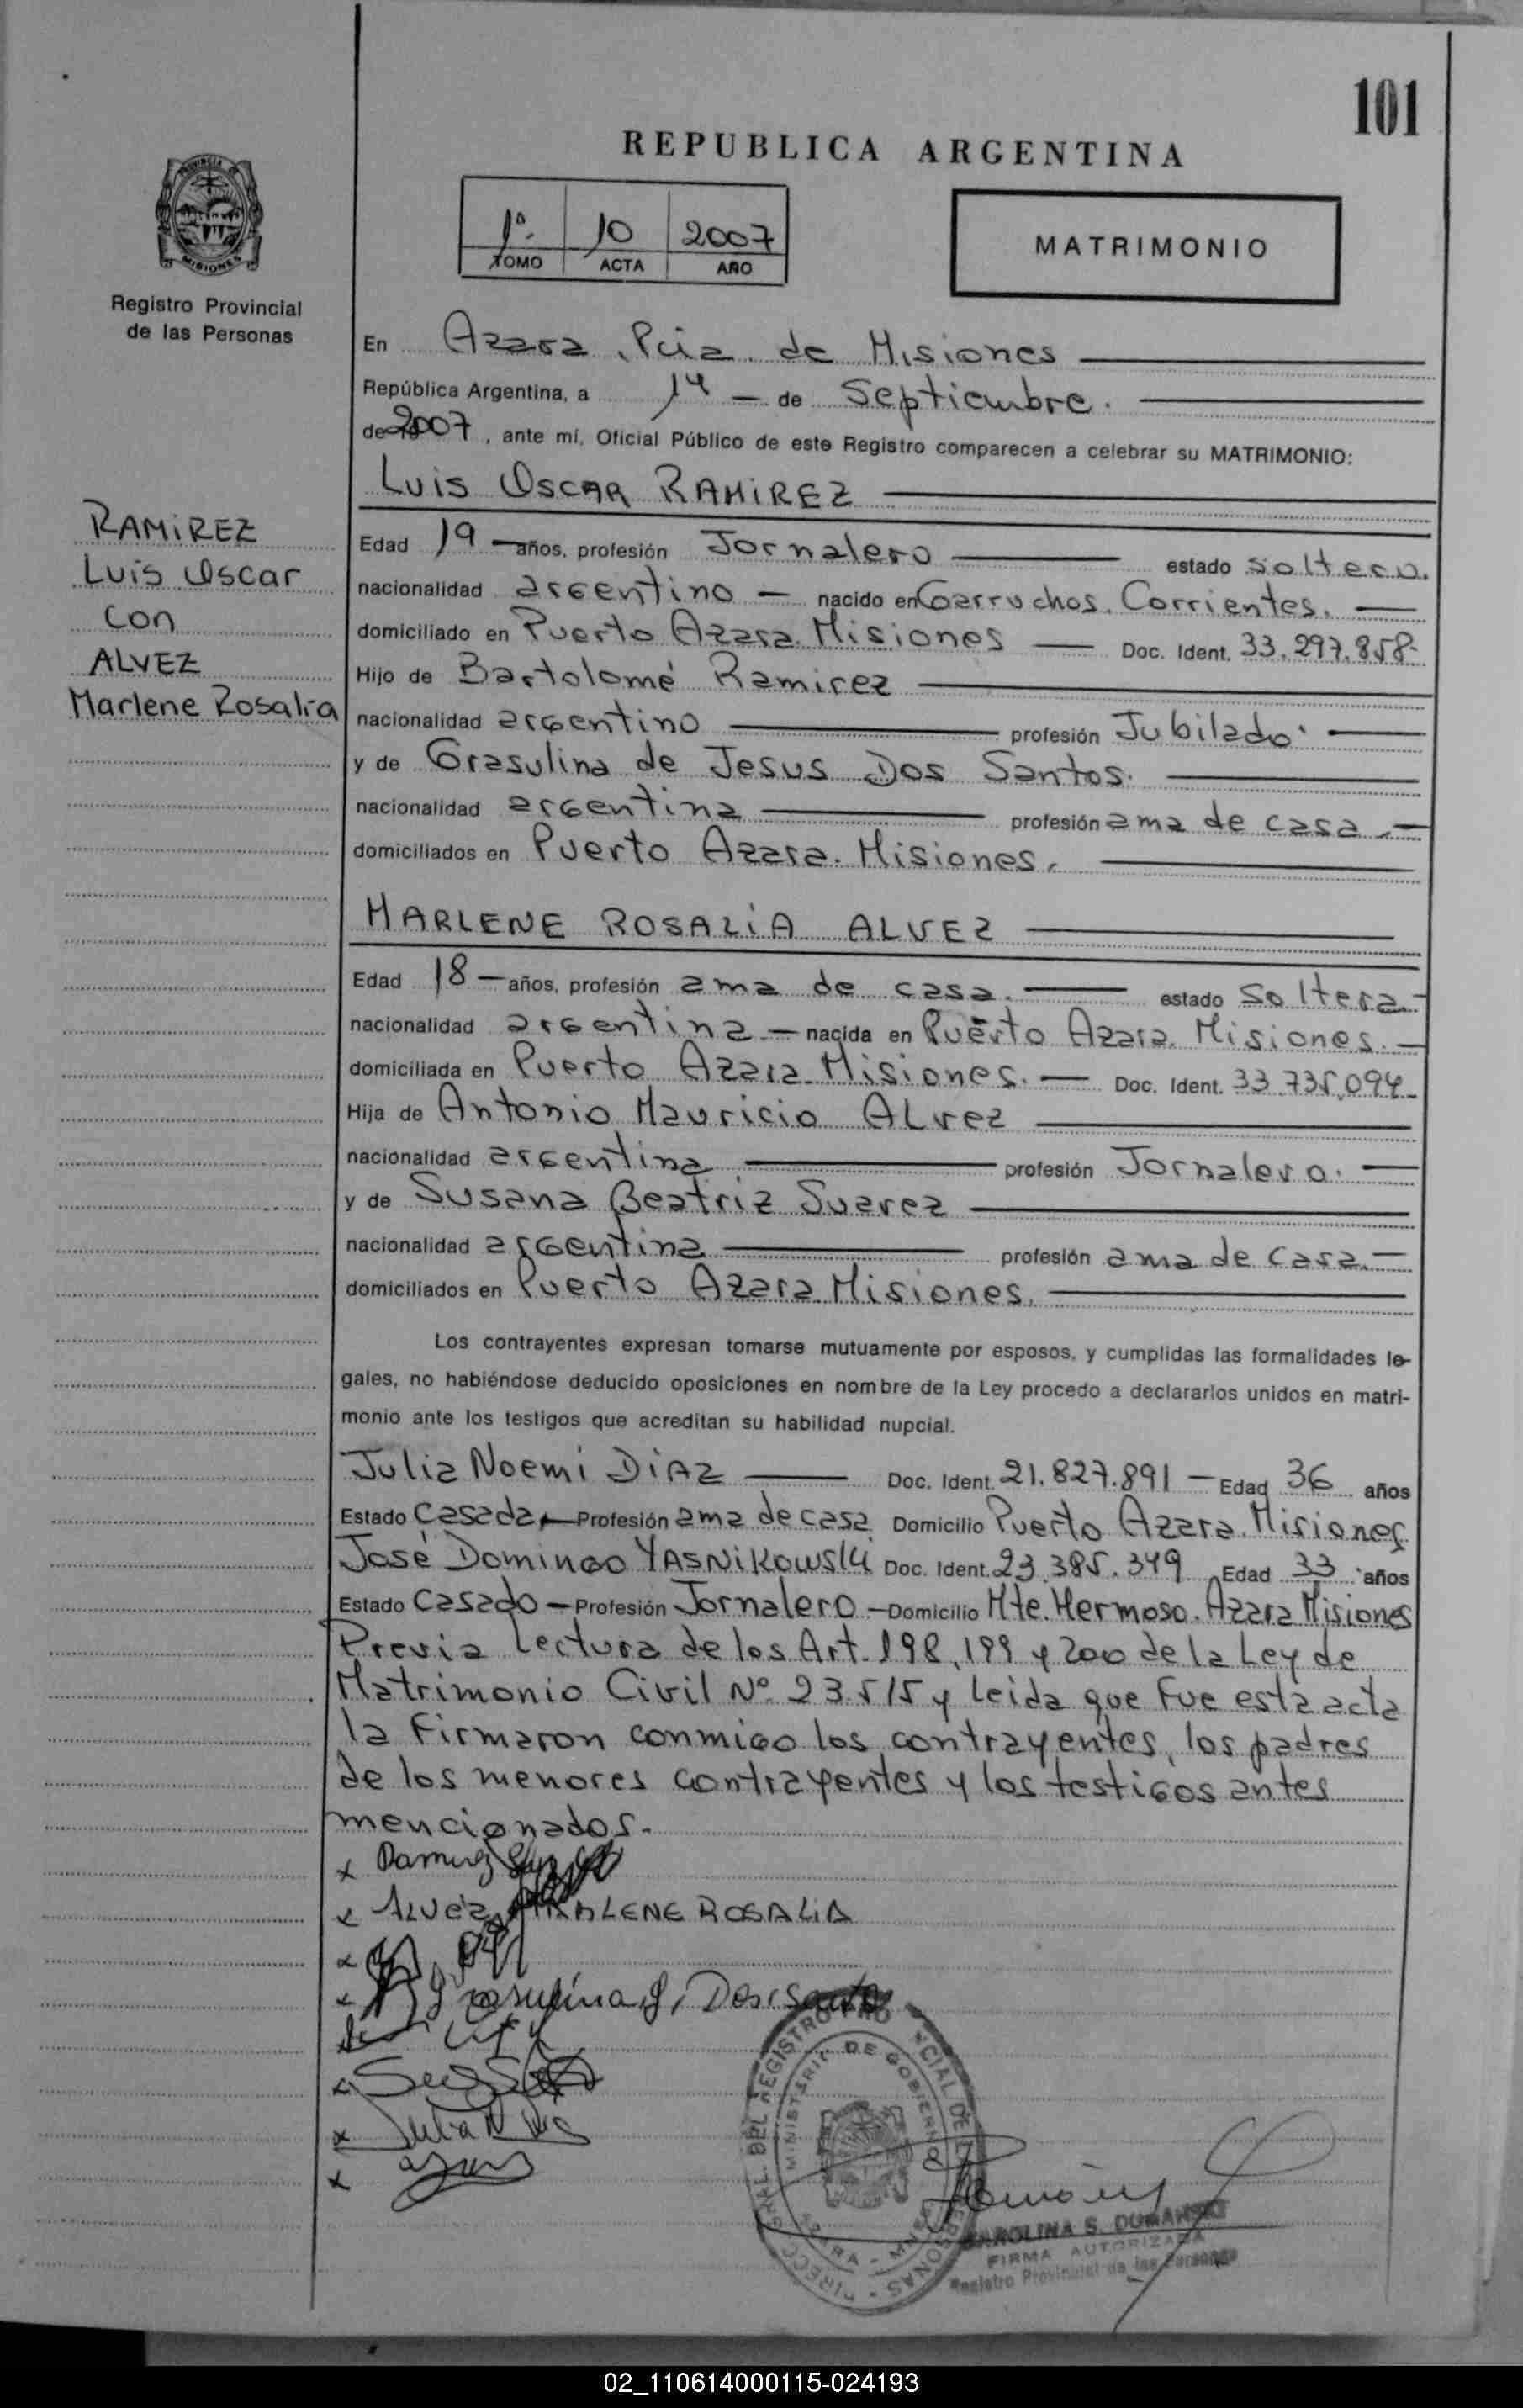 101
REPUBLICA ARGENTINA
1º. 10 2007
TOMO ACTA AÑO
MATRIMONIO
Registro Provincial
de las Personas
En Azara, Pcia. de Misiones
República Argentina, a 14 - de Septiembre.
de 2007, ante mí, Oficial Público de este Registro comparecen a celebrar su MATRIMONIO:
Luis Oscar RAMIREZ
RAMIREZ
Luis Oscar
con
ALVEZ
Marlene Rosalía
Edad 19 - años, profesión Jornalero estado soltero.
nacionalidad argentino - nacido en Garruchos. Corrientes.
domiciliado en Puerto Azara. Misiones Doc. Ident. 33.297.858-
Hijo de Bartolomé Ramirez
nacionalidad argentino profesión Jubilado.
y de Grasulina de Jesus Dos Santos.
nacionalidad argentina profesión ama de casa.-
domiciliados en Puerto Azara. Misiones.
MARLENE ROSALÍA ALVEZ
Edad 18 - años, profesión ama de casa. estado soltera.-
nacionalidad argentina - nacida en Puerto Azara. Misiones.-
domiciliada en Puerto Azara. Misiones. - Doc. Ident. 33.735.094-
Hija de Antonio Mauricio ALvez
nacionalidad argentina profesión Jornalero.
y de Susana Beatriz Suarez
nacionalidad argentina profesión ama de casa.-
domiciliados en Puerto Azara Misiones.
Los contrayentes expresan tomarse mutuamente por esposos, y cumplidas las formalidades le-
gales, no habiéndose deducido oposiciones en nombre de la Ley procedo a declararlos unidos en matri-
monio ante los testigos que acreditan su habilidad nupcial.
Julia Noemi DIAZ Doc. Ident. 21.827.891 - Edad 36 años
Estado Casada - Profesión ama de casa Domicilio Puerto Azara. Misiones
José Domingo YASNIKOWSKI Doc. Ident. 23.385.349 Edad 33 años
Estado Casado - Profesión Jornalero - Domicilio Mte. Hermoso. Azara Misiones
Previa Lectura de los Art. 198, 199 y 200 de la Ley de
Matrimonio Civil Nº 23.515 y Leida que fue esta acta
la firmaron conmigo los contrayentes, los padres
de los menores contrayentes y los testigos antes
mencionados.-
x Ramirez
x ALVEZ MARLENE ROSALIA
x
x Grasulina J. Dos santo
x
x
x Julia N Diaz
x
CAROLINA S. DUMANSKI
FIRMA AUTORIZADA
Registro Provincial de las Personas
02_110614000115-024193